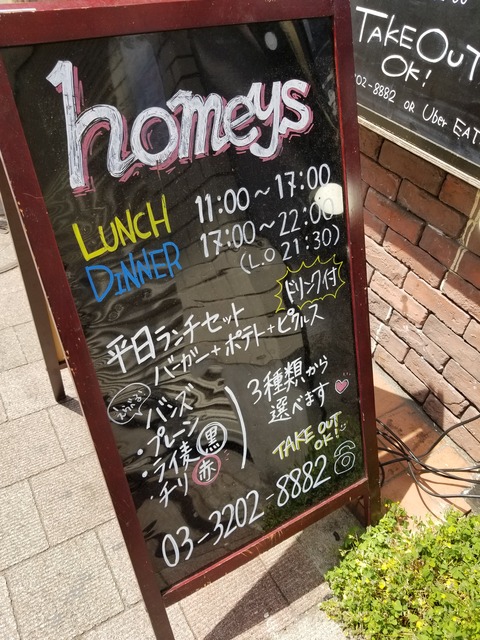 homeys
LUNCH 11:00~17:00
DINNER 17:00~22:00
(L.O 21:30)
ドリンク付
平日ランチセット
バーガー+ポテト+ピクルス
えらべる
バンズ
・プレーン
・ライ麦 黒
・チリ 赤
3種類から
選べます
TAKE OUT
OK!
03-3202-8882
TAKE OUT
OK!
202-8882 OR Uber EAT